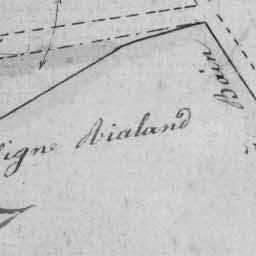 igne Rialand
Bain